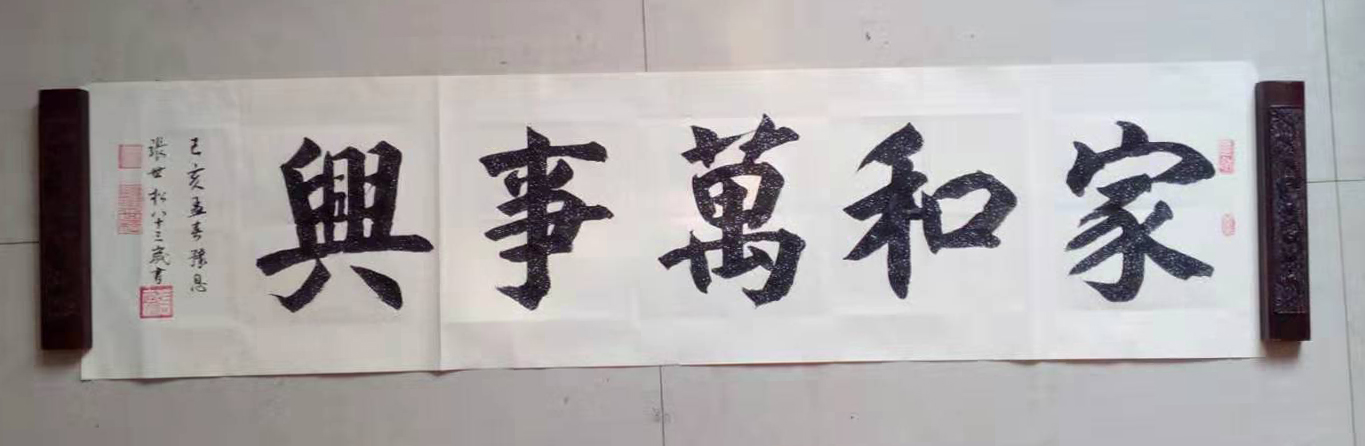 家和萬事興
己亥孟春豫息
張世松八十三歲書